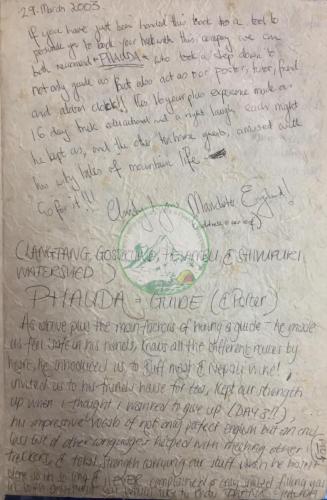 29. March 2003
If you have just been handed this book as a tool to
persuade you to back your trek with this company we can
both recommend "PHAUDA" who took a step down to
not only guide us but also act as our porter, tutor, friend
and alarm clock!! His 16 year plus experience made a
16 day trek educational and a right laugh, each night
he kept us, and the other teahouse guests, amused with
his witty tales of mountain life
Go for it!!! Manchester England!
(LANGTANG, GOSAIKUND, HELAMBU, &
WATERSHED)
PHAUDA - GUIDE (& Porter)
As above plus the main factors of having a guide - he made
us feel safe in his hands, knows all the different routes by
heart, he introduced us to Buff meat & Nepali wine!,
invited us to his friends house for tea, kept our strength
up when I thought I wanted to give up (DAY 3!!),
his impressive vocab of not only perfect english but an end
less list of other languages helped with meeting other
trekkers, & total strength carrying our stuff when he
& NEVER complained